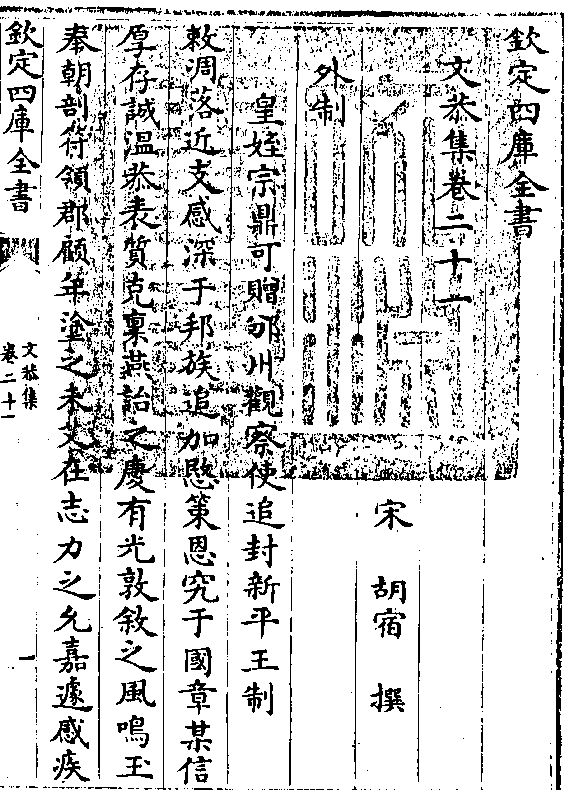 欽定四庫全書
文恭集卷二十一
宋 胡宿 撰
外制
皇姪宗鼎可贈邠州觀察使追封新平王制
敕凋落近支感深于邦族追加愍策恩究于國章某信
厚存誠溫恭表質克稟燕詒之慶有光敦敘之風鳴玉
奉朝剖符領郡顧年塗之未艾在志力之允嘉遽感疾
欽定四庫全書
文恭集
卷二十一
一